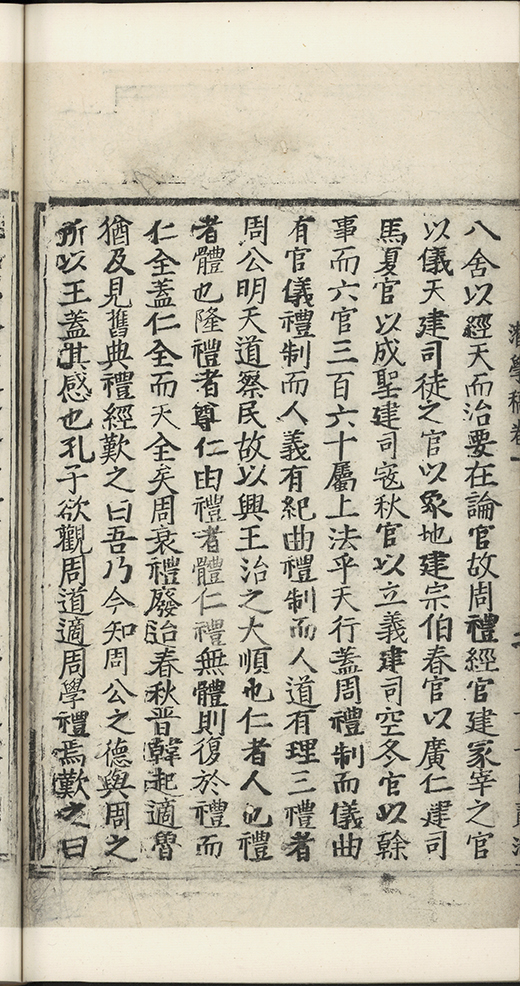 八舍以經天而治要在論官故周禮經官建冢宰之官
以儀天建司徒之官以象地建宗伯春官以廣仁建司
馬夏官以成聖建司寇秋官以立義建司空冬官以幹
事而六官三百六十屬上法乎天行蓋周禮制而儀曲
有官儀禮制而人義有紀曲禮制而人道有理三禮者
周公明天道察民故以興王治之大順也仁者人也禮
者體也隆禮者尊仁由禮者體仁禮無體則復於禮而
仁全蓋仁全而天全矣周衰禮廢治春秋晉韓起適魯
猶及見舊典禮經歎之曰吾乃今知周公之德與周之
所以王蓋其感也孔子欲觀周道適周學禮焉歎之曰